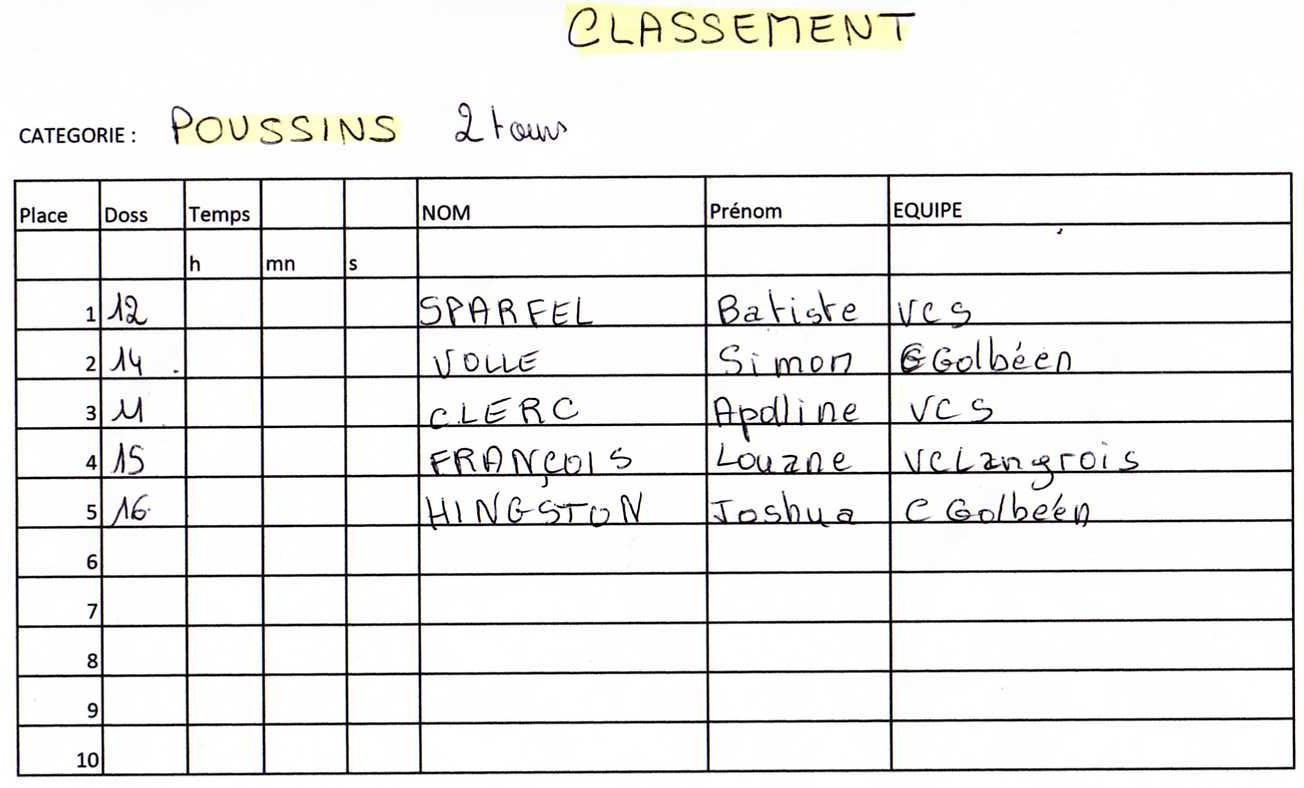 CLASSEMENT
CATEGORIE : POUSSINS 2 tours
Place Doss Temps NOM Prénom EQUIPE
h mn s
1 12 SPARFEL Batiste VCS
2 14 VOLLE Simon C Golbéen
3 11 CLERC Apolline VCS
4 15 FRANÇOIS Louane VCLangrois
5 16 HINGSTON Joshua C Golbéen
6
7
8
9
10